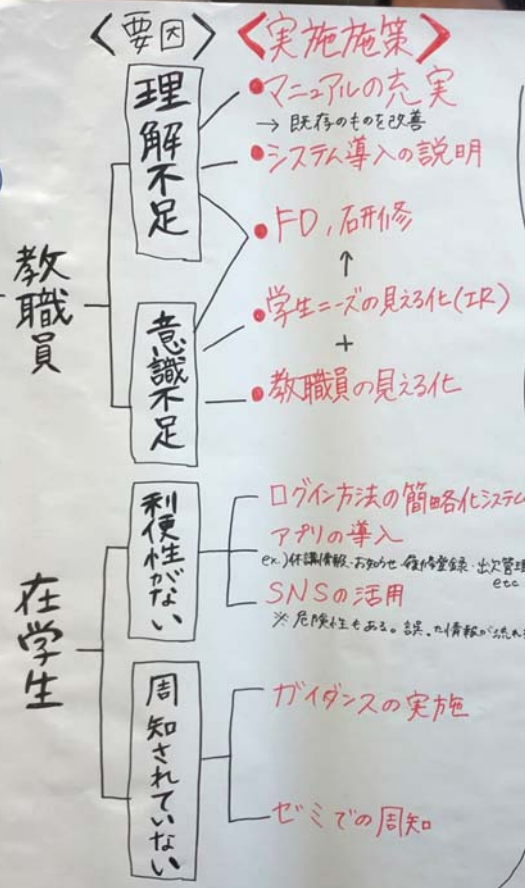 〈要因〉 〈実施施策〉
教職員
理解不足
●マニュアルの充実
→ 既存のものを改善
●システム導入の説明
●FD, 研修
↑
意識不足
●学生ニーズの見える化(IR)
+
●教職員の見える化
在学生
利便性がない
ログイン方法の簡略化システム
アプリの導入
ex.)休講情報・お知らせ・履修登録・出欠管理
etc
SNSの活用
※ 危険性もある。誤った情報が流れ
周知されていない
ガイダンスの実施
ゼミでの周知